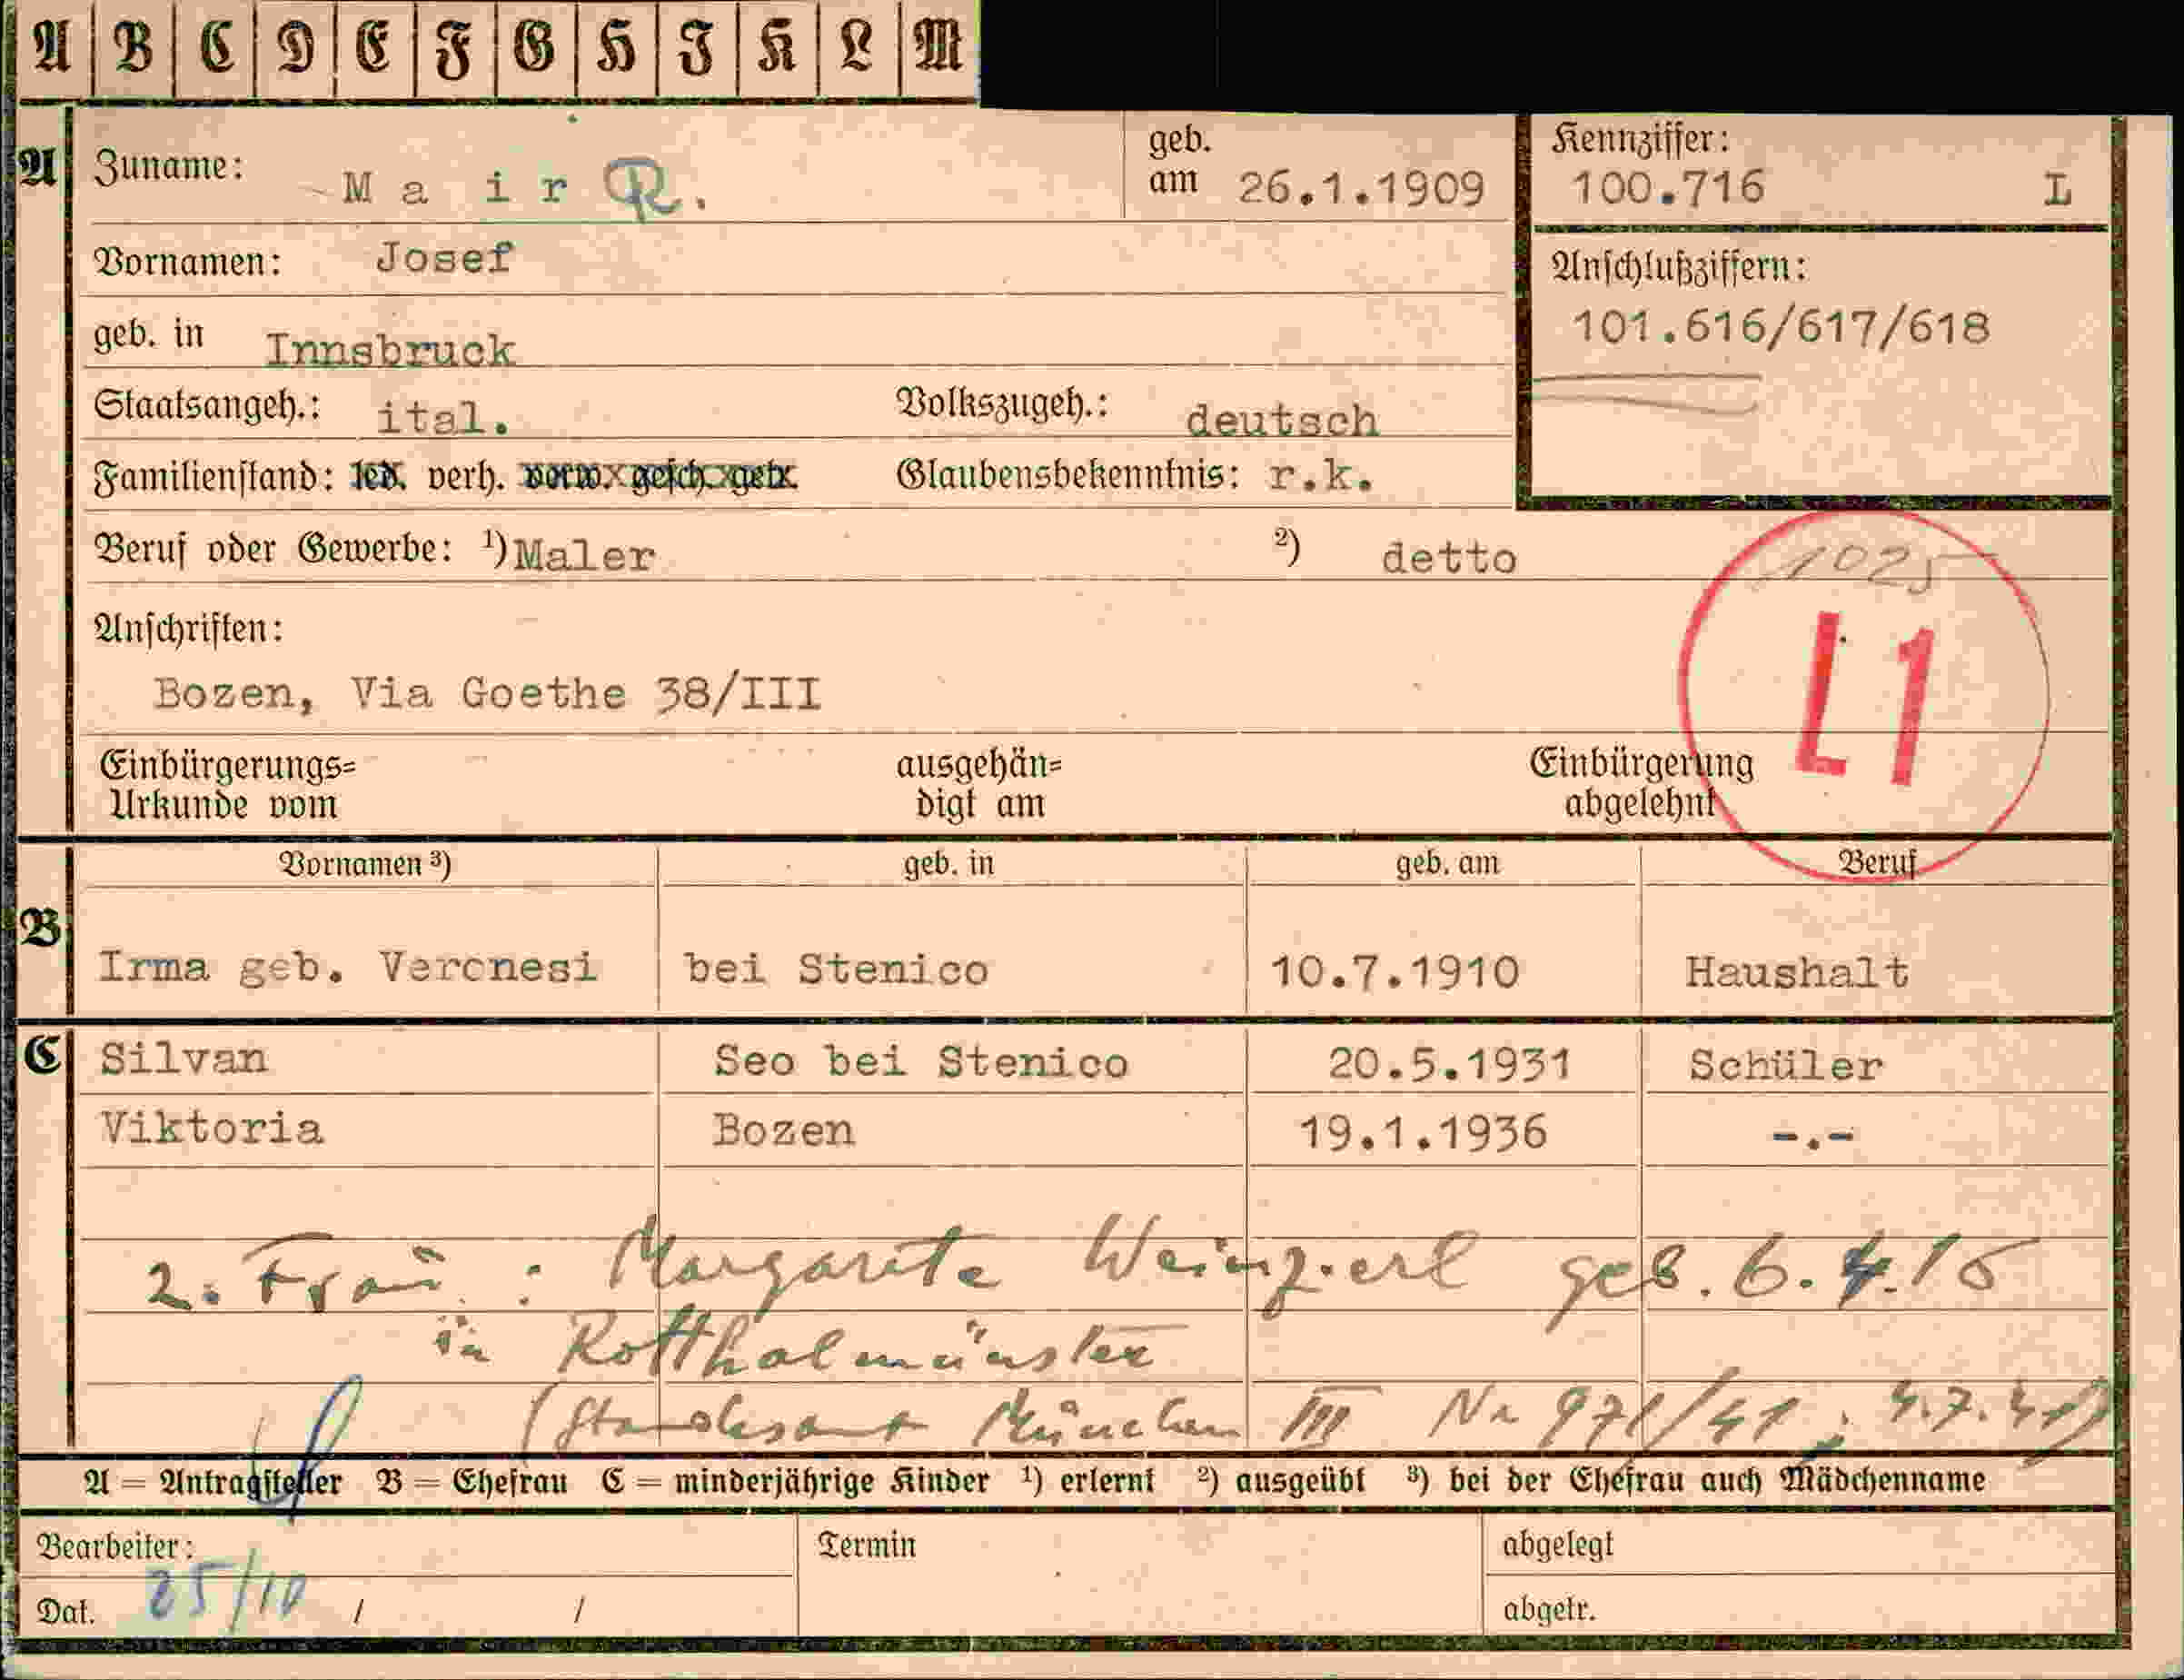 A B C D E F G H I K L M
A Zuname: M a i r R. geb. am 26.1.1909 Kennziffer: 100.716 L
Vornamen: Josef Anschlußziffern:
geb. in Innsbruck 101.616/617/618
Staatsangeh.: ital. Volkszugeh.: deutsch
Familienstand: led. verh. verw. gesch. getr. Glaubensbekenntnis: r.k.
Beruf oder Gewerbe: ¹) Maler ²) detto 1025
Anschriften: L1
Bozen, Via Goethe 38/III
Einbürgerungs= ausgehän= Einbürgerung
Urkunde vom digt am abgelehnt
Vornamen ³) geb. in geb. am Beruf
B Irma geb. Veronesi bei Stenico 10.7.1910 Haushalt
C Silvan Seo bei Stenico 20.5.1931 Schüler
Viktoria Bozen 19.1.1936 -.-
2. Frau : Margarete Weinzierl geb. 6.4.15
in Rotthalmünster
(Standesamt München III Nr 971/41 ; 4.7.41)
A = Antragsteller B = Ehefrau C = minderjährige Kinder ¹) erlernt ²) ausgeübt ³) bei der Ehefrau auch Mädchenname
Bearbeiter: Termin abgelegt
Dat. 25/10 / / abgetr.